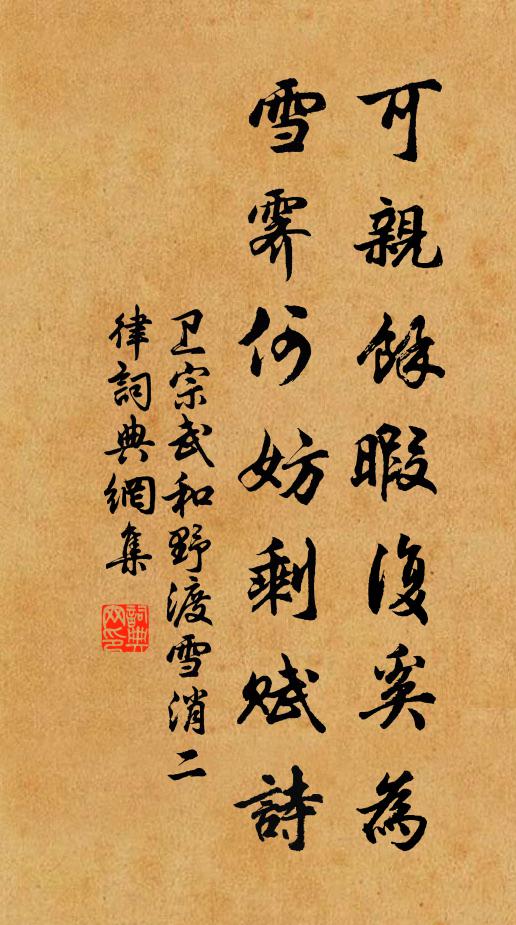 可親餘暇復奚為
雪霽何妨剩賦詩
卫宗武和野渡雪消二
律詞典網集
詞典